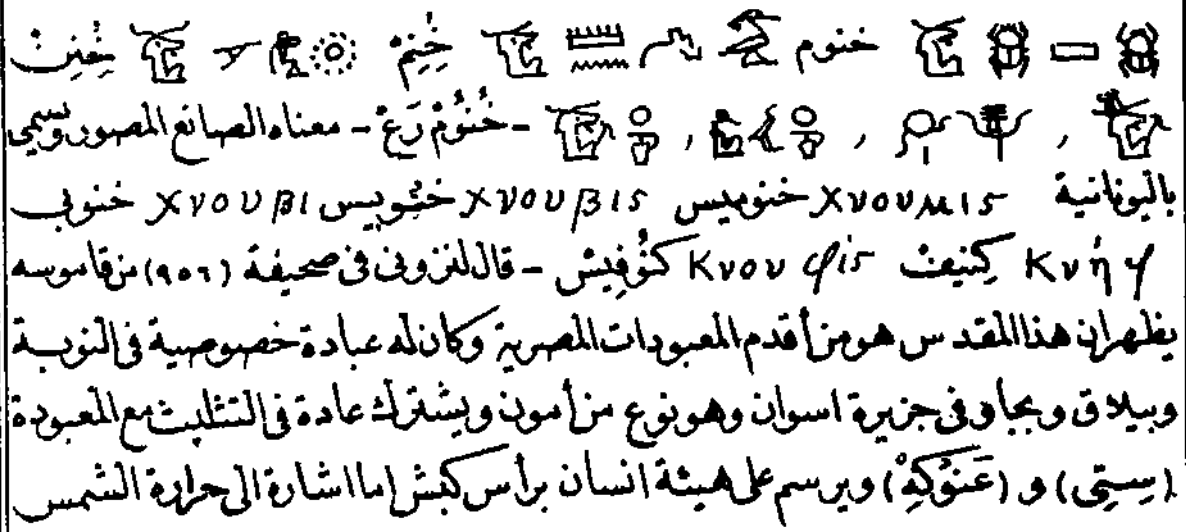 خنوم خِنِمْ خِنِتْ
, , , - خُنُومْ رَعْ - معناه الصانع المصور ويسمى
باليونانية Χνουμις خنوميس Χνουβις خنوبيس Χνουβι خنوبى
Κνήφ كِنيفْ Κνουφίς كنُوفِيسْ - قال لنزونى فى صحيفة (٩٥٦) من قاموسه
يظهر ان هذا المقدس هو من أقدم المعبودات المصرية وكان له عبادة خصوصية فى النوبة
وبيلاق وبجاو فى جزيرة اسوان وهو نوع من أمون ويشترك عادة فى التثليث مع المعبودة
(سِيتِى) و (عَنُوكِهْ) ويرسم على هيئة انسان برأس كبش إما اشارة الى حرارة الشمس